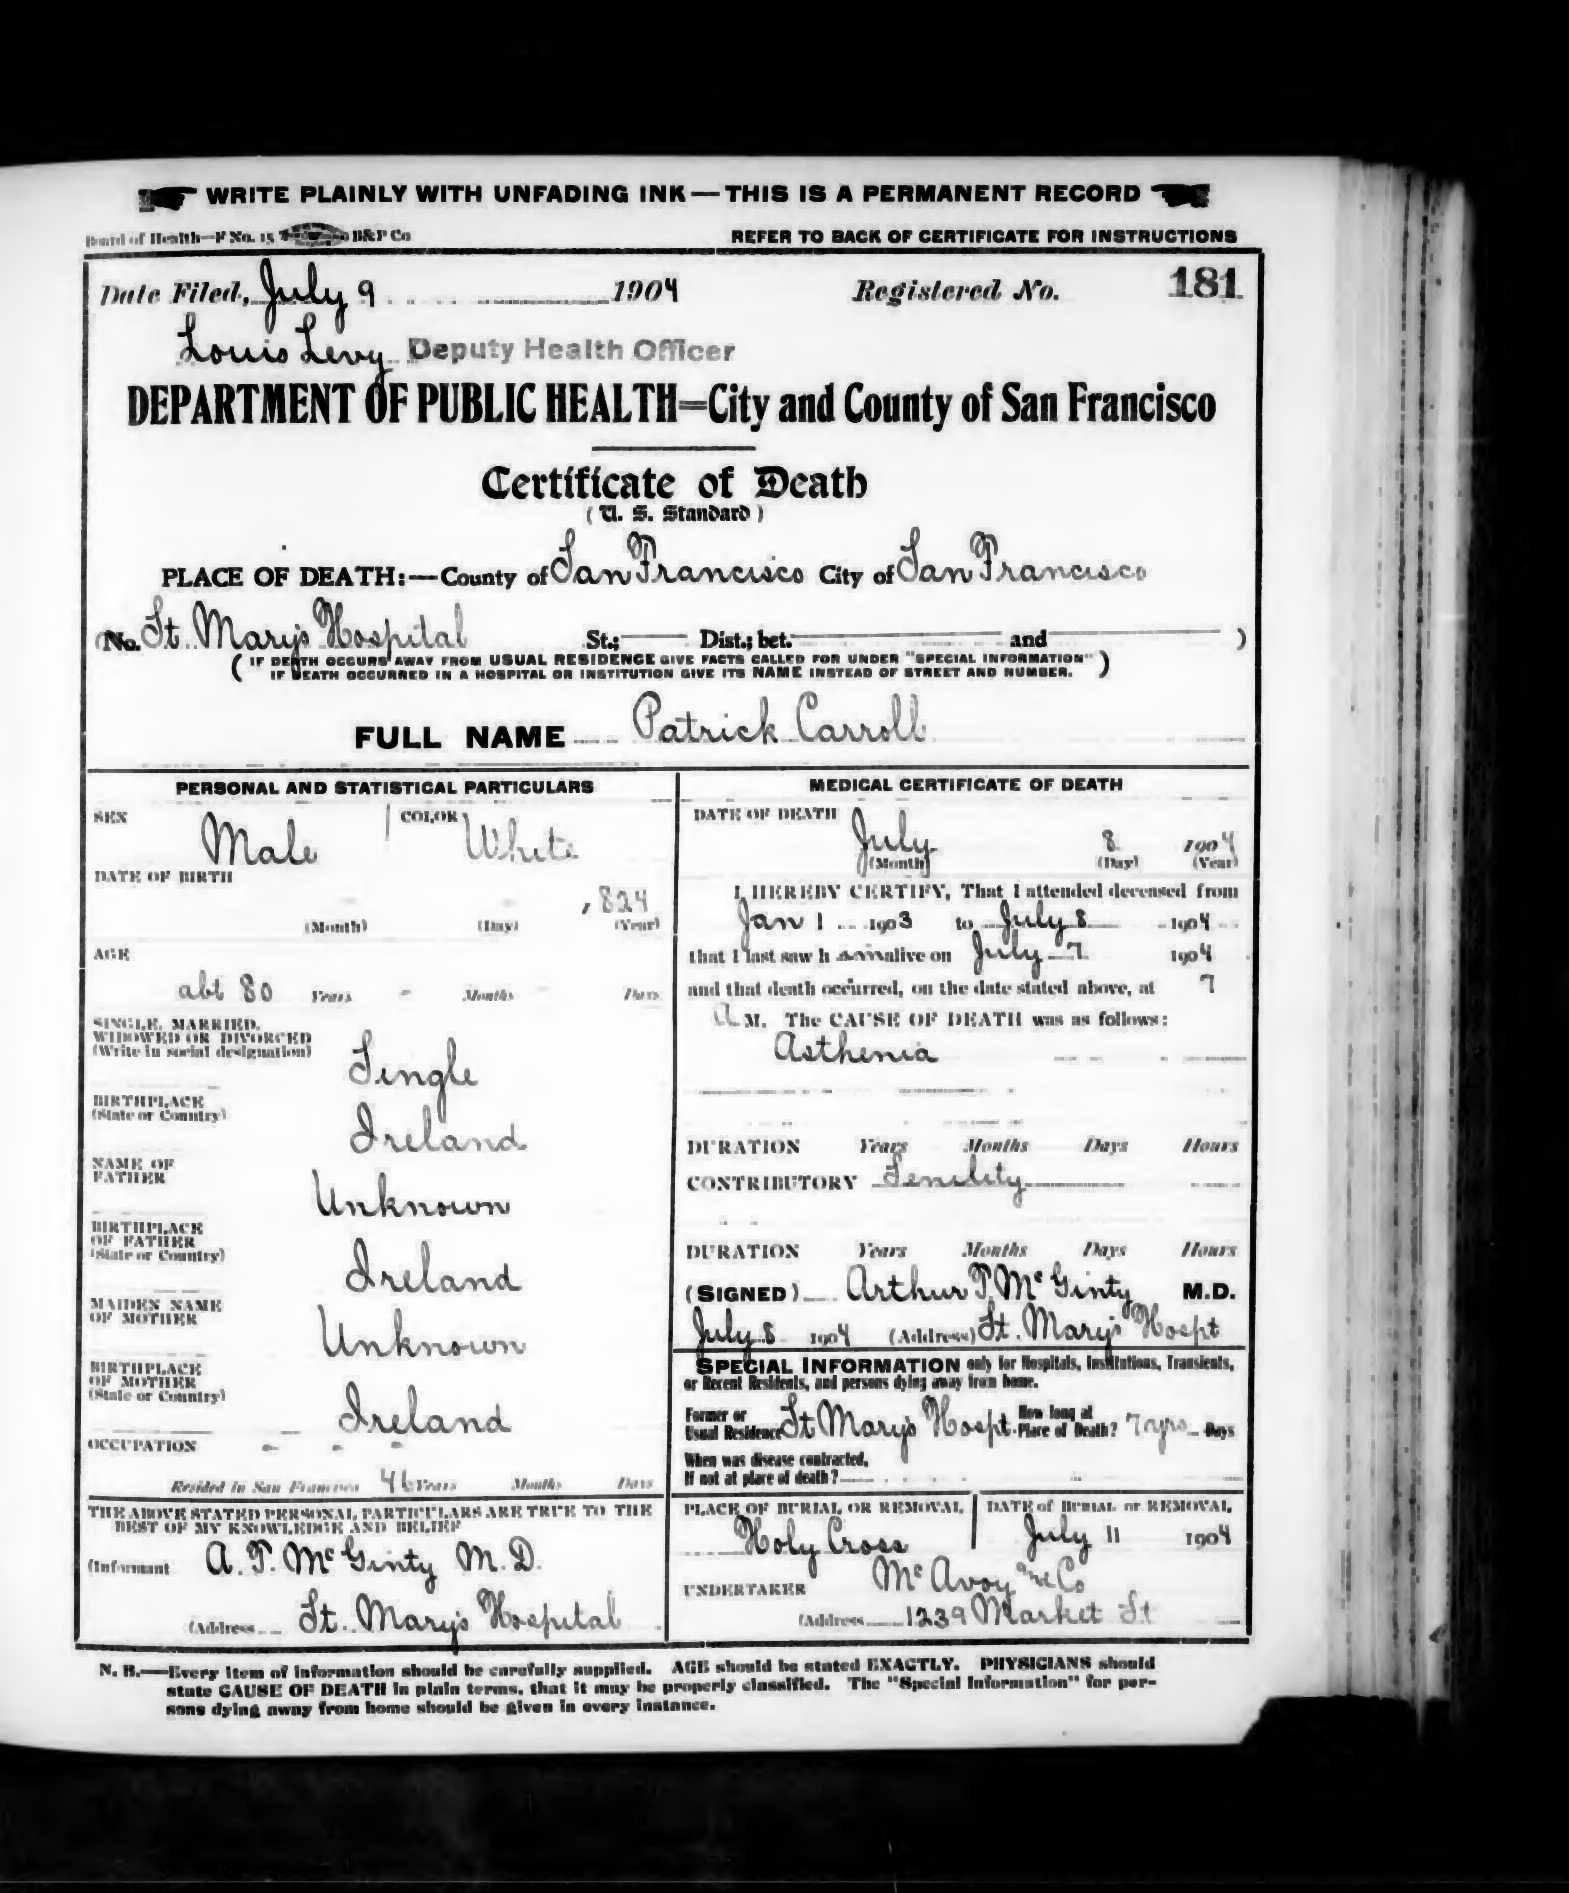 WRITE PLAINLY WITH UNFADING INK — THIS IS A PERMANENT RECORD
Board of Health—F No. 15 B&P Co REFER TO BACK OF CERTIFICATE FOR INSTRUCTIONS
Date Filed, July 9 1904 Registered No. 181
Louis Levy Deputy Health Officer
DEPARTMENT OF PUBLIC HEALTH=City and County of San Francisco
Certificate of Death
(U. S. Standard)
PLACE OF DEATH:—County of San Francisco City of San Francisco
(No. St. Mary's Hospital St.; Dist.; bet. and )
(IF DEATH OCCURS AWAY FROM USUAL RESIDENCE GIVE FACTS CALLED FOR UNDER "SPECIAL INFORMATION"
IF DEATH OCCURRED IN A HOSPITAL OR INSTITUTION GIVE ITS NAME INSTEAD OF STREET AND NUMBER.)
FULL NAME Patrick Carroll
PERSONAL AND STATISTICAL PARTICULARS
SEX Male COLOR White
DATE OF BIRTH
, 824
(Month) (Day) (Year)
AGE
abt 80 Years - Months - Days
SINGLE, MARRIED,
WIDOWED OR DIVORCED
(Write in social designation)
Single
BIRTHPLACE
(State or Country)
Ireland
NAME OF
FATHER
Unknown
BIRTHPLACE
OF FATHER
(State or Country)
Ireland
MAIDEN NAME
OF MOTHER
Unknown
BIRTHPLACE
OF MOTHER
(State or Country)
Ireland
OCCUPATION - - -
Resided in San Francisco 46 Years Months Days
THE ABOVE STATED PERSONAL PARTICULARS ARE TRUE TO THE
BEST OF MY KNOWLEDGE AND BELIEF
(Informant A. P. McGinty M.D.
(Address St. Mary's Hospital
MEDICAL CERTIFICATE OF DEATH
DATE OF DEATH
July 8 1904
(Month) (Day) (Year)
I, HEREBY CERTIFY, That I attended deceased from
Jan 1 1903 to July 8 1904
that I last saw h im alive on July 7 1904
and that death occurred, on the date stated above, at 7
A M. The CAUSE OF DEATH was as follows:
Asthenia
DURATION Years Months Days Hours
CONTRIBUTORY Senility
DURATION Years Months Days Hours
(SIGNED) Arthur P. McGinty M.D.
July 8 1904 (Address) St. Mary's Hospt
SPECIAL INFORMATION only for Hospitals, Institutions, Transients,
or Recent Residents, and persons dying away from home.
Former or
Usual Residence St Mary's Hospt. How long at
Place of Death? 7 yrs Days
When was disease contracted,
If not at place of death?
PLACE OF BURIAL OR REMOVAL DATE of BURIAL or REMOVAL
Holy Cross July 11 1904
UNDERTAKER McAvoy and Co
(Address 1239 Market St
N. B.—Every item of information should be carefully supplied. AGE should be stated EXACTLY. PHYSICIANS should
state CAUSE OF DEATH in plain terms, that it may be properly classified. The "Special Information" for per-
sons dying away from home should be given in every instance.